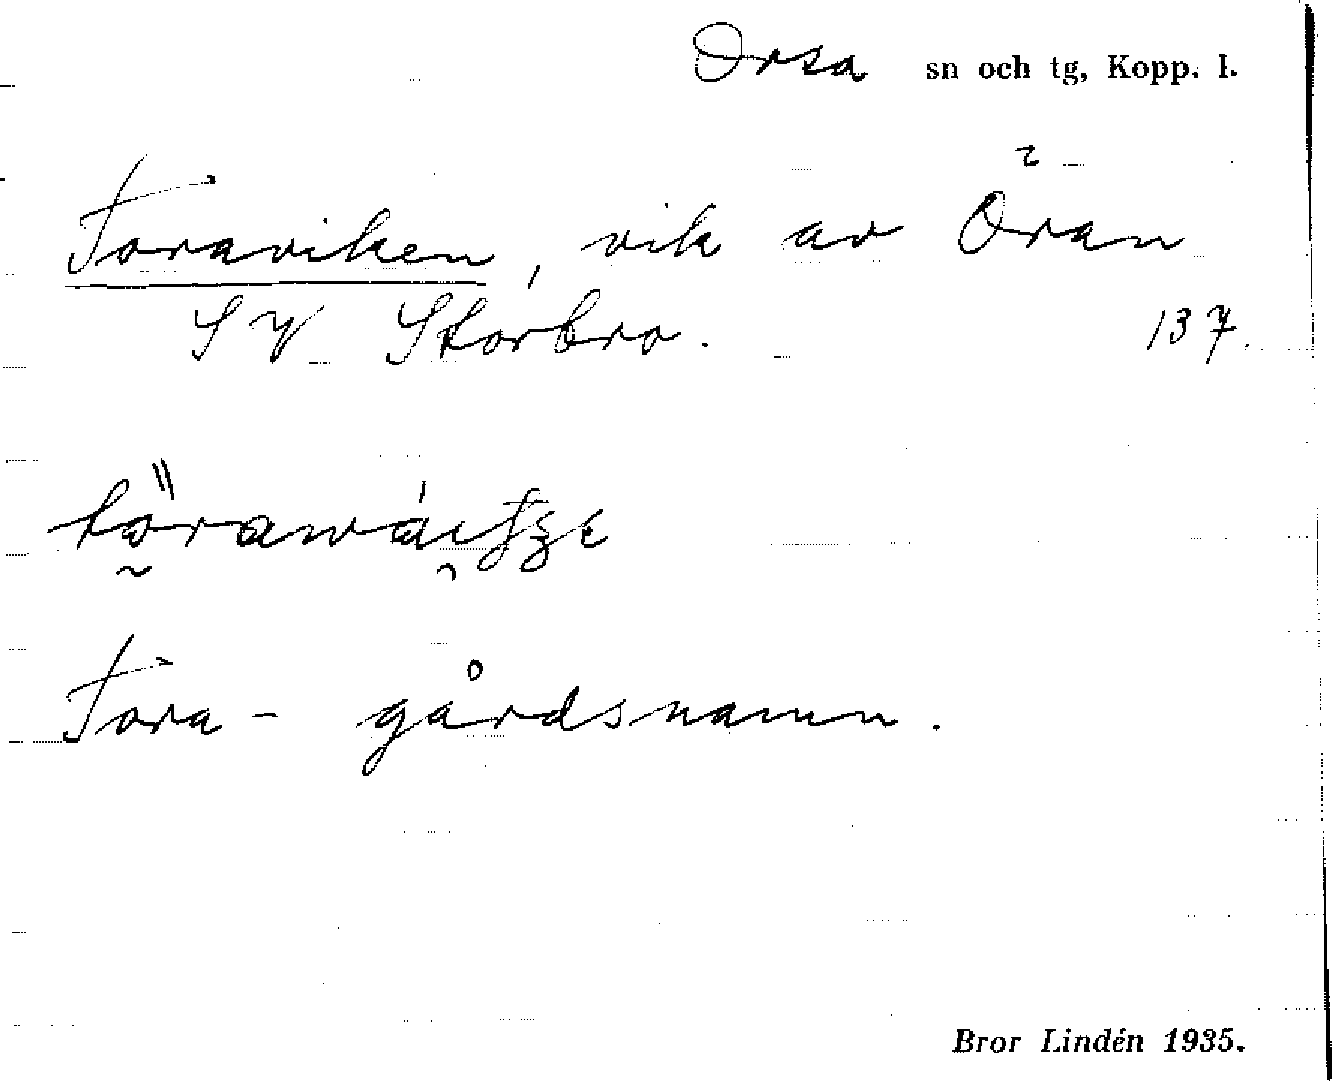 Orsa sn och tg, Kopp. l.
Toraviken, vik av Öran
SV Storbro. 137.
Tora- gårdsnamn.
Bror Lindén 1935.